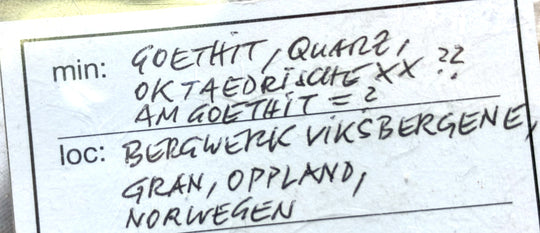 min: GOETHIT, QUARZ,
OKTAEDRISCHE XX ??
AM GOETHIT = ?
loc: BERGWERK VIKSBERGENE,
GRAN, OPPLAND,
NORWEGEN